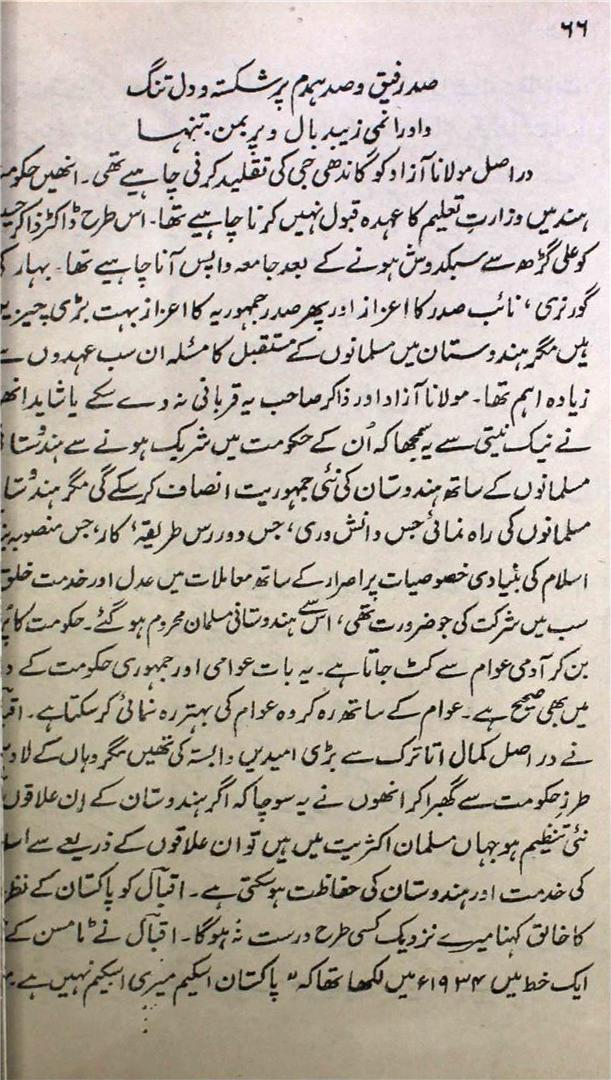 ۶۶
صد رفیق و صد ہمدم پر شکستہ و دل تنگ
داورا نمی زیبد بال و پر بمن، تنہا
در اصل مولانا آزاد کو گاندھی جی کی تقلید کرنی چاہیے تھی۔ انھیں
ہند میں وزارتِ تعلیم کا عہدہ قبول نہیں کرنا چاہیے تھا۔ اس طرح ڈاکٹر ذاکر
کو علی گڑھ سے سبکدوش ہونے کے بعد جامعہ واپس آنا چاہیے تھا۔ بہار
گورنری، نائب صدر کا اعزاز اور پھر صدر جمہوریہ کا اعزاز بہت بڑی چیزیں
ہیں مگر ہندوستان میں مسلمانوں کے مستقبل کا مسئلہ ان سب عہدوں سے
زیادہ اہم تھا۔ مولانا آزاد اور ذاکر صاحب یہ قربانی نہ دے سکے یا شاید
نے نیک نیتی سے یہ سمجھا کہ اُن کے حکومت میں شریک ہونے سے
مسلمانوں کے ساتھ ہندوستان کی نئی جمہوریت انصاف کر سکے گی مگر
مسلمانوں کی راہ نمائی جس دانش وری، جس دوررس طریقۂ کار، جس
اسلام کی بنیادی خصوصیات پر اصرار کے ساتھ معاملات میں عدل اور خدمت خلق
سب میں شرکت کی جو ضرورت تھی، اس سے ہندوستانی مسلمان محروم ہو گئے۔ حکومت کا
بن کر آدمی عوام سے کٹ جاتا ہے۔ یہ بات عوامی اور جمہوری حکومت کے
میں بھی صحیح ہے۔ عوام کے ساتھ رہ کر وہ عوام کی بہتر رہ نمائی کر سکتا ہے۔
نے در اصل کمال اتاترک سے بڑی امیدیں وابستہ کی تھیں مگر وہاں کے
طرزِ حکومت سے گھبرا کر انھوں نے یہ سوچا کہ اگر ہندوستان کے اِن علاقوں
نئی تنظیم ہو جہاں مسلمان اکثریت میں ہیں تو ان علاقوں کے ذریعے سے
کی خدمت اور ہندوستان کی حفاظت ہو سکتی ہے۔ اقبال کو پاکستان کے
کا خالق کہنا میرے نزدیک کسی طرح درست نہ ہوگا۔ اقبال نے ٹامسن کے
ایک خط میں ۱۹۳۴ء میں لکھا تھا کہ "پاکستان اسکیم میری اسکیم نہیں ہے۔